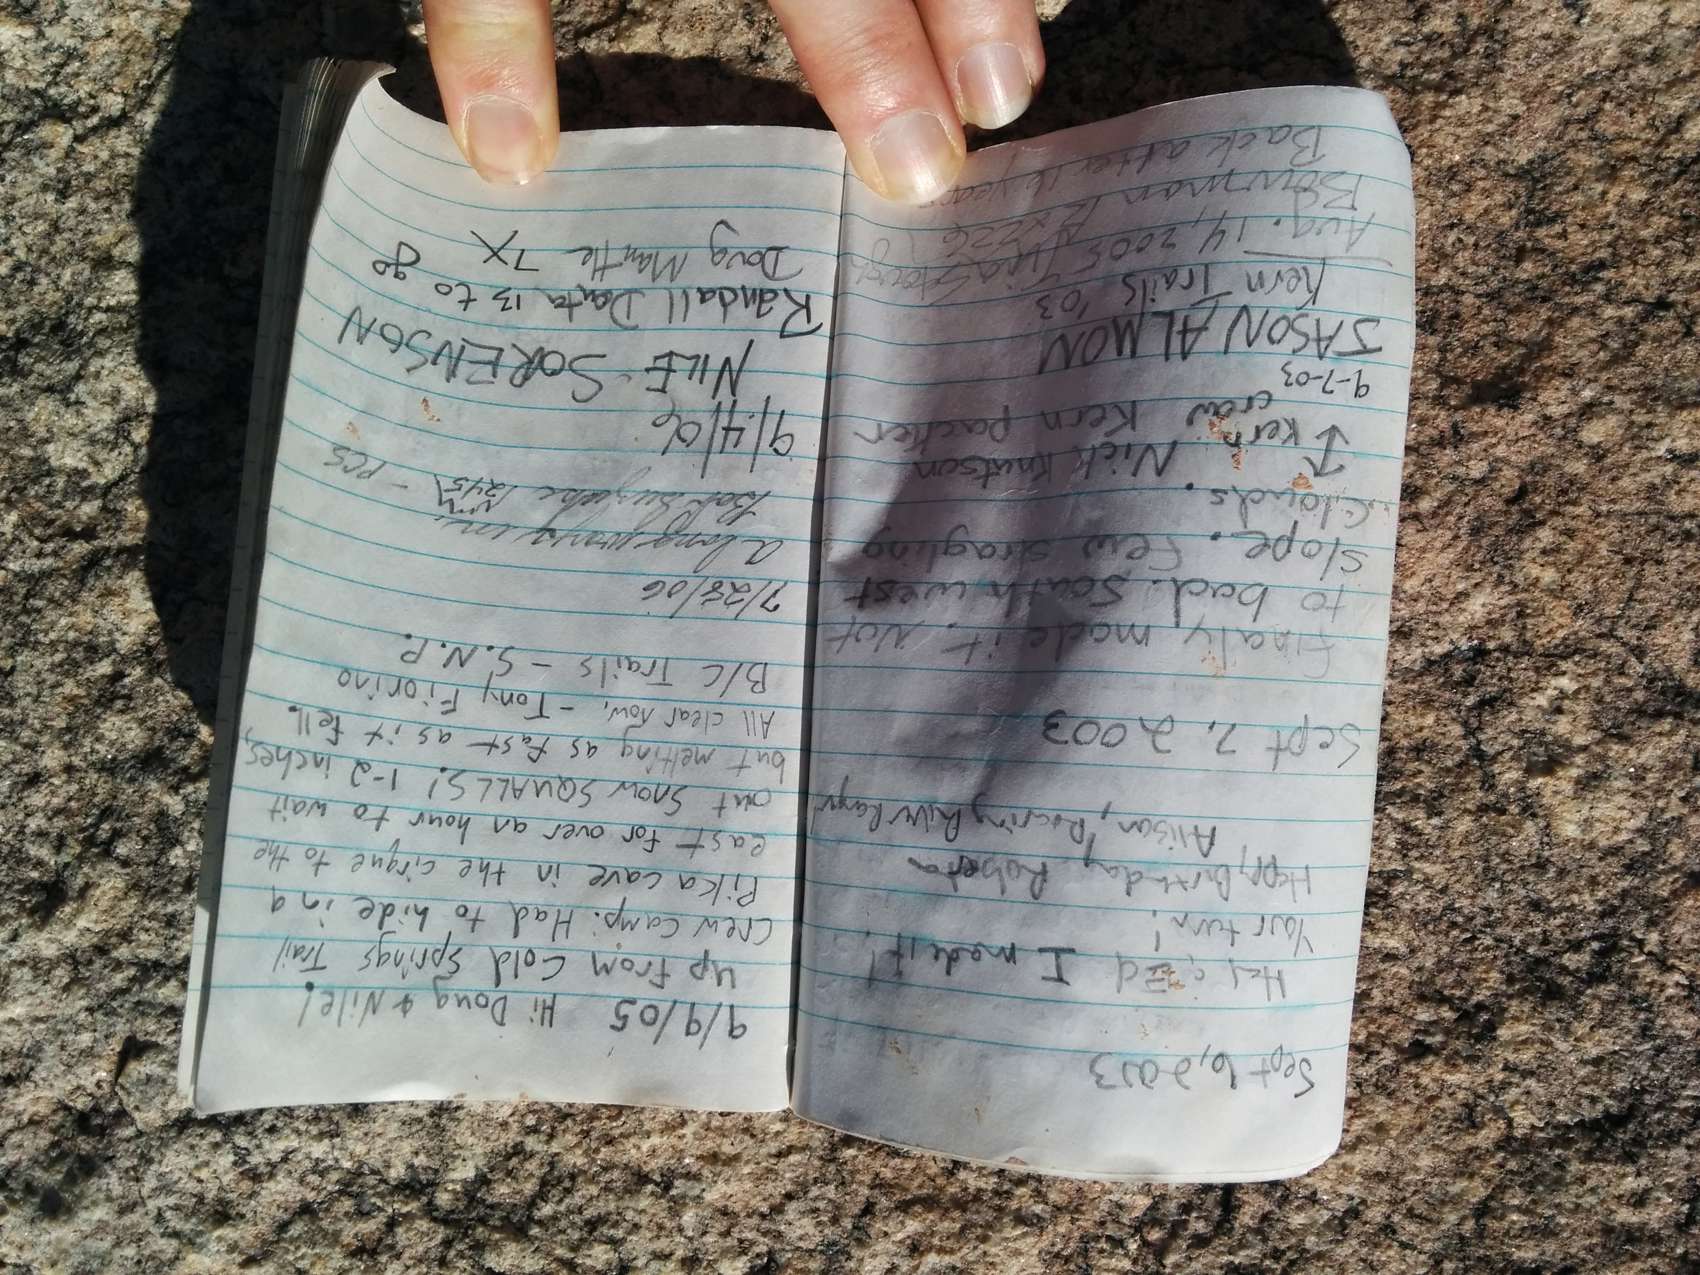 Sept 6, 2003
Hey, Ed I made it!
Your turn!
Happy Birthday Roberta
Alison, Roaring River Ranger
Sept 7, 2003
finaly made it. Not
to bad. South west
slope. Few stragling
clouds.
Nick Knutson
↑ Kern Kern packer
crew
9-7-03
JASON ALMON
Kern Trails '03
Aug. 14, 2005
Bowman
Back after 16 years
9/9/05 Hi Doug & Nile!
up from Cold Springs Trail
crew camp. Had to hide in a
Pika cave in the cirque to the
east for over an hour to wait
out snow SQUALLS! 1-2 inches,
but melting as fast as it fell.
All clear now, - Tony Fiorino
B/C Trails - S.N.P.
7/28/06
a long way in
1245 - PCS
9/4/06
NILE SORENSON
Randall Danta 13 to go
Doug Mantle 7X